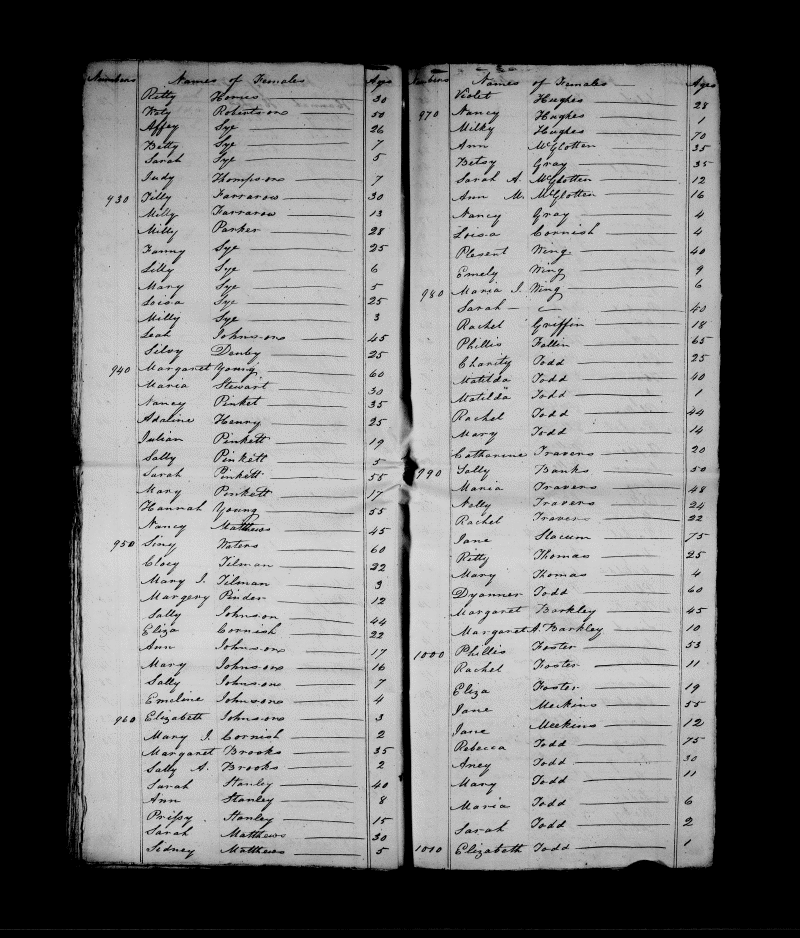 Numbers Names of Females Ages
Ritty Homes 30
Katy Robertson 50
Affey Sye 26
Betty Sye 7
Sarah Sye 5
Judy Thompson 7
930 Tilly Farrarow 30
Milly Farrarow 13
Milly Parker 28
Fanny Sye 25
Lilly Sye 6
Mary Sye 5
Loisa Sye 25
Milly Sye 3
Leah Johnson 45
Silvy Danby 25
940 Margaret Young 60
Maria Stewart 30
Nancy Pinket 35
Adaline Henry 25
Julian Pinkett 19
Sally Pinkett 5
Sarah Pinkett 55
Mary Pinkett 17
Hannah Young 55
Nancy Matthews 45
950 Siny Waters 60
Cloey Tilman 22
Mary J. Tilman 3
Margery Pinder 12
Sally Johnson 44
Eliza Cornish 22
Ann Johnson 17
Mary Johnson 16
Sally Johnson 7
Emeline Johnson 4
960 Elizabeth Johnson 3
Mary J. Cornish 2
Margaret Brooks 35
Sally A. Brooks 2
Sarah Stanley 40
Ann Stanley 8
Prissy Stanley 15
Sarah Matthews 30
Sidney Matthews 5
Numbers Names of Females Ages
Violet Hughes 28
970 Nancy Hughes 1
Milky Hughes 70
Ann McGlotten 35
Betsy Gray 35
Sarah A. McGlotten 12
Ann M. McGlotten 16
Nancy Gray 4
Loisa Cornish 4
Plesent Wing 40
Emely Wing 9
980 Maria J. Wing 6
Sarah 40
Rachel Griffin 18
Phillis Fallin 65
Charity Todd 25
Matilda Todd 40
Matilda Todd 1
Rachel Todd 44
Mary Todd 14
Catharine Travers 20
990 Sally Banks 50
Maria Travers 48
Nelly Travers 24
Rachel Travers 22
Jane Slacum 75
Ritty Thomas 25
Mary Thomas 4
Dyanner Todd 60
Margaret Barkley 45
Margaret A. Barkley 10
1000 Phillis Foster 53
Rachel Foster 11
Eliza Foster 19
Jane Meekins 55
Jane Meekins 12
Rebecca Todd 75
Aney Todd 30
Mary Todd 11
Maria Todd 6
Sarah Todd 2
1010 Elizabeth Todd 1